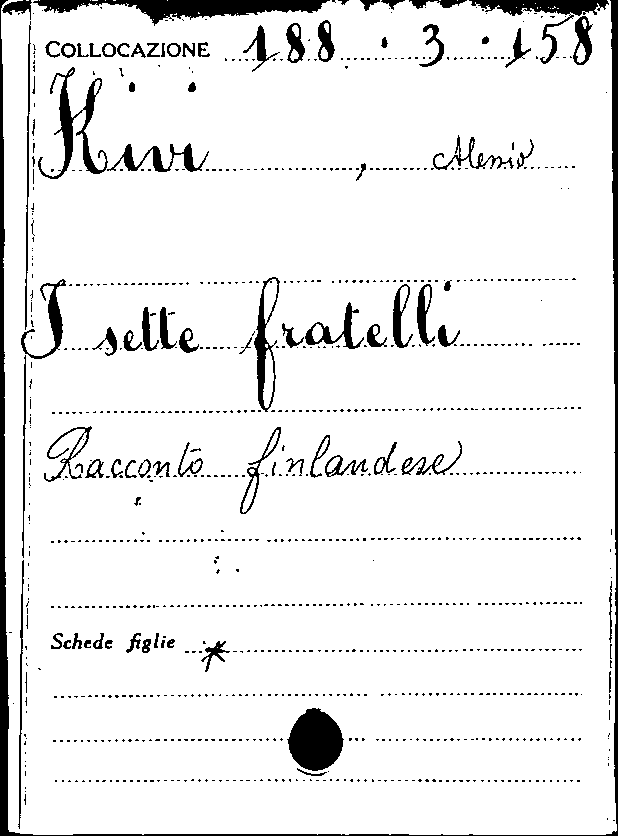 COLLOCAZIONE 188 . 3 . 158
Kivi , Alessio
I sette fratelli
Racconto finlandese
Schede figlie *